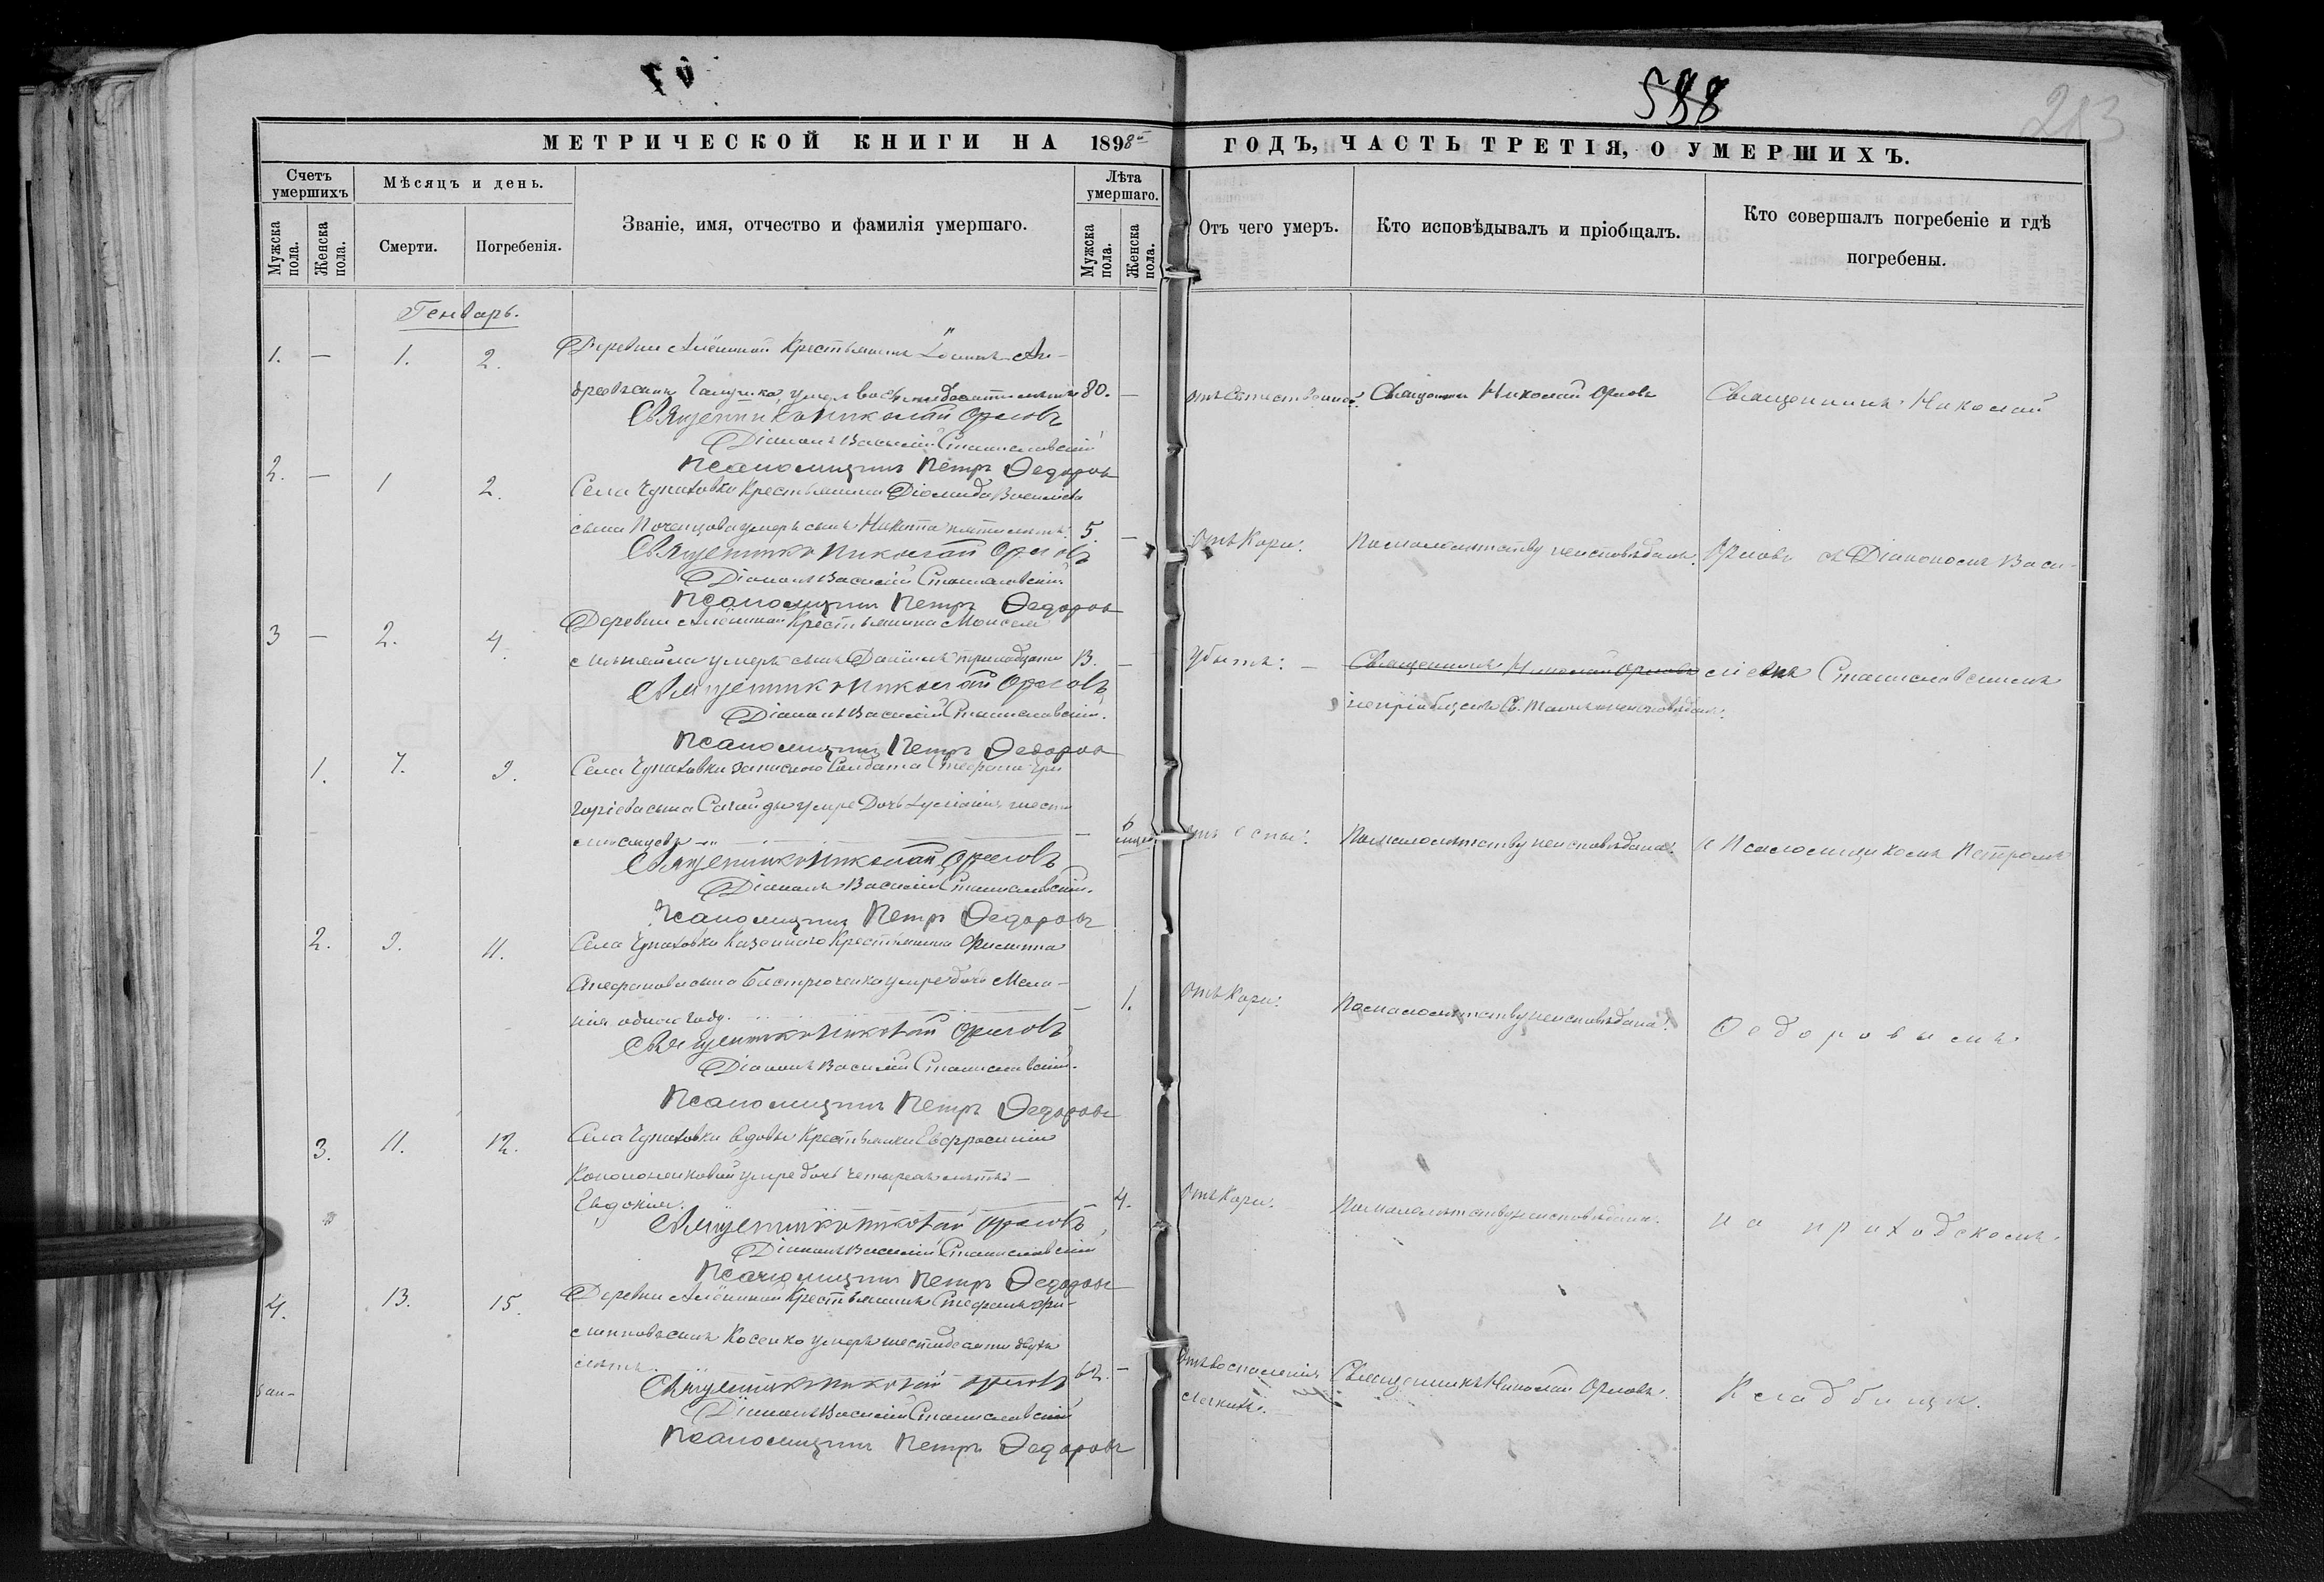 588
213
МЕТРИЧЕСКОЙ КНИГИ НА 1898й ГОДЪ, ЧАСТЬ ТРЕТІЯ, О УМЕРШИХЪ.
Счетъ умершихъ
Мѣсяцъ и день.
Лѣта умершаго.
Мужска пола.
Женска пола.
Смерти.
Погребенія.
Званіе, имя, отчество и фамилія умершаго.
Мужска пола.
Женска пола.
Отъ чего умеръ.
Кто исповѣдывалъ и пріобщалъ.
Кто совершалъ погребеніе и гдѣ погребены.
Генварь.
1. — 1. 2. Деревни Крестьянинъ Іоаннъ Ан-
дреевъ сынъ умеръ восьмидесяти лѣтъ 80. — Священникъ Николай Орловъ Священникъ Николай
Священникъ Николай Орловъ
Діаконъ Василій Станиславскій
Псаломщикъ Петръ Федоровъ
2. — 1 2. Села Чупаховки Крестьянина Діомида Васильева
сына умеръ сынъ Никита пяти лѣтъ. 5. — Отъ Кори. По малолѣтству неисповѣданъ. Орловъ съ Діакономъ Васи-
Священникъ Николай Орловъ
Діаконъ Василій Станиславскій
Псаломщикъ Петръ Федоровъ
3 — 2. 4. Деревни Крестьянина Моисея
умеръ сынъ Даніилъ тринадцати 13. — Убитъ. — Священникъ Николай Орловъ ліемъ Станиславскимъ
непріобщенъ Св. Таинъ и неисповѣданъ.
Священникъ Николай Орловъ
Діаконъ Василій Станиславскій.
Псаломщикъ Петръ Федоровъ
1. 7. 9. Села Чупаховки запаснаго Солдата Стефана Гри
горіева сына умре Дочь шести
мѣсяцевъ — 6 мѣсяц. Отъ Оспы. По малолѣтству неисповѣдана. и Псаломщикомъ Петромъ
Священникъ Николай Орловъ
Діаконъ Василій Станиславскій.
Псаломщикъ Петръ Федоровъ
2. 9. 11. Села Чупаховки Казеннаго Крестьянина Филиппа
Стефанова сына умре дочь Мела-
нія одного году. — 1. Отъ Кори. По малолѣтству неисповѣдана. Федоровымъ
Священникъ Николай Орловъ
Діаконъ Василій Станиславскій.
Псаломщикъ Петръ Федоровъ
3. 11. 12. Села Чупаховки вдовы Крестьянки Евфросиніи
умре дочь четырехъ лѣтъ —
Евдокія. 4. Отъ Кори. По малолѣтству неисповѣдана. на приходскомъ
Священникъ Николай Орловъ
Діаконъ Василій Станиславскій
Псаломщикъ Петръ Федоровъ
4. 13. 15. Деревни Крестьянинъ Стефанъ Фи-
липповъ сынъ Косенко умеръ шестидесяти двухъ
лѣтъ. 62. — Отъ воспаленія легкихъ. Священникъ Николай Орловъ. Кладбищѣ.
Священникъ Николай Орловъ
Діаконъ Василій Станиславскій
Псаломщикъ Петръ Федоровъ